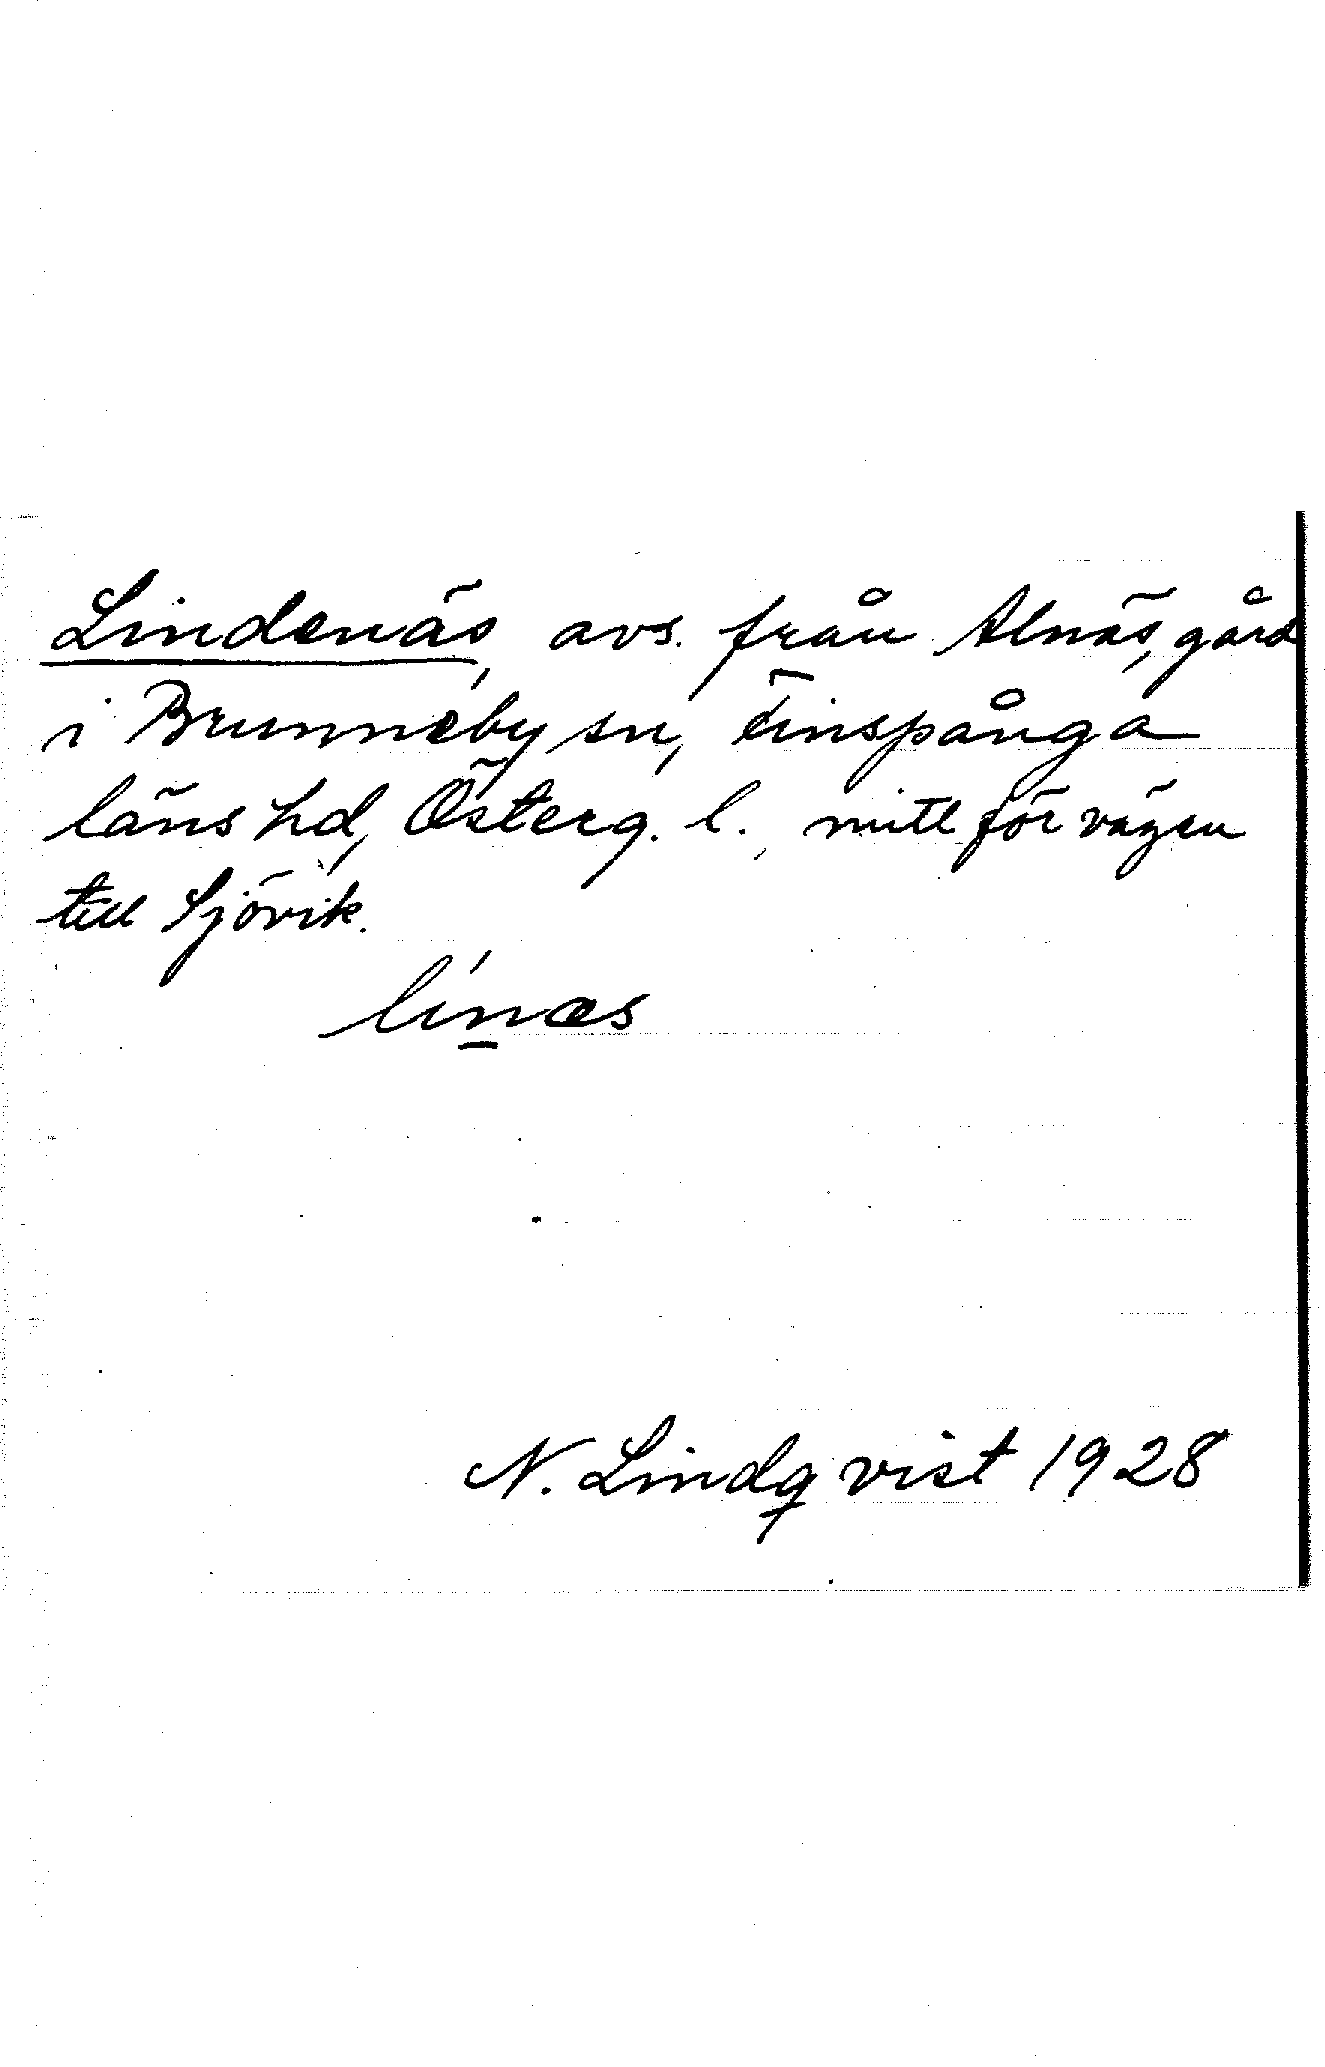 Lindenäs, avs. från Alnäs, gård
i Brunneby sn, Finspånga
läns hd, Österg. l., mitt för vägen
till Sjövik.
li'næs
N. Lindqvist 1928